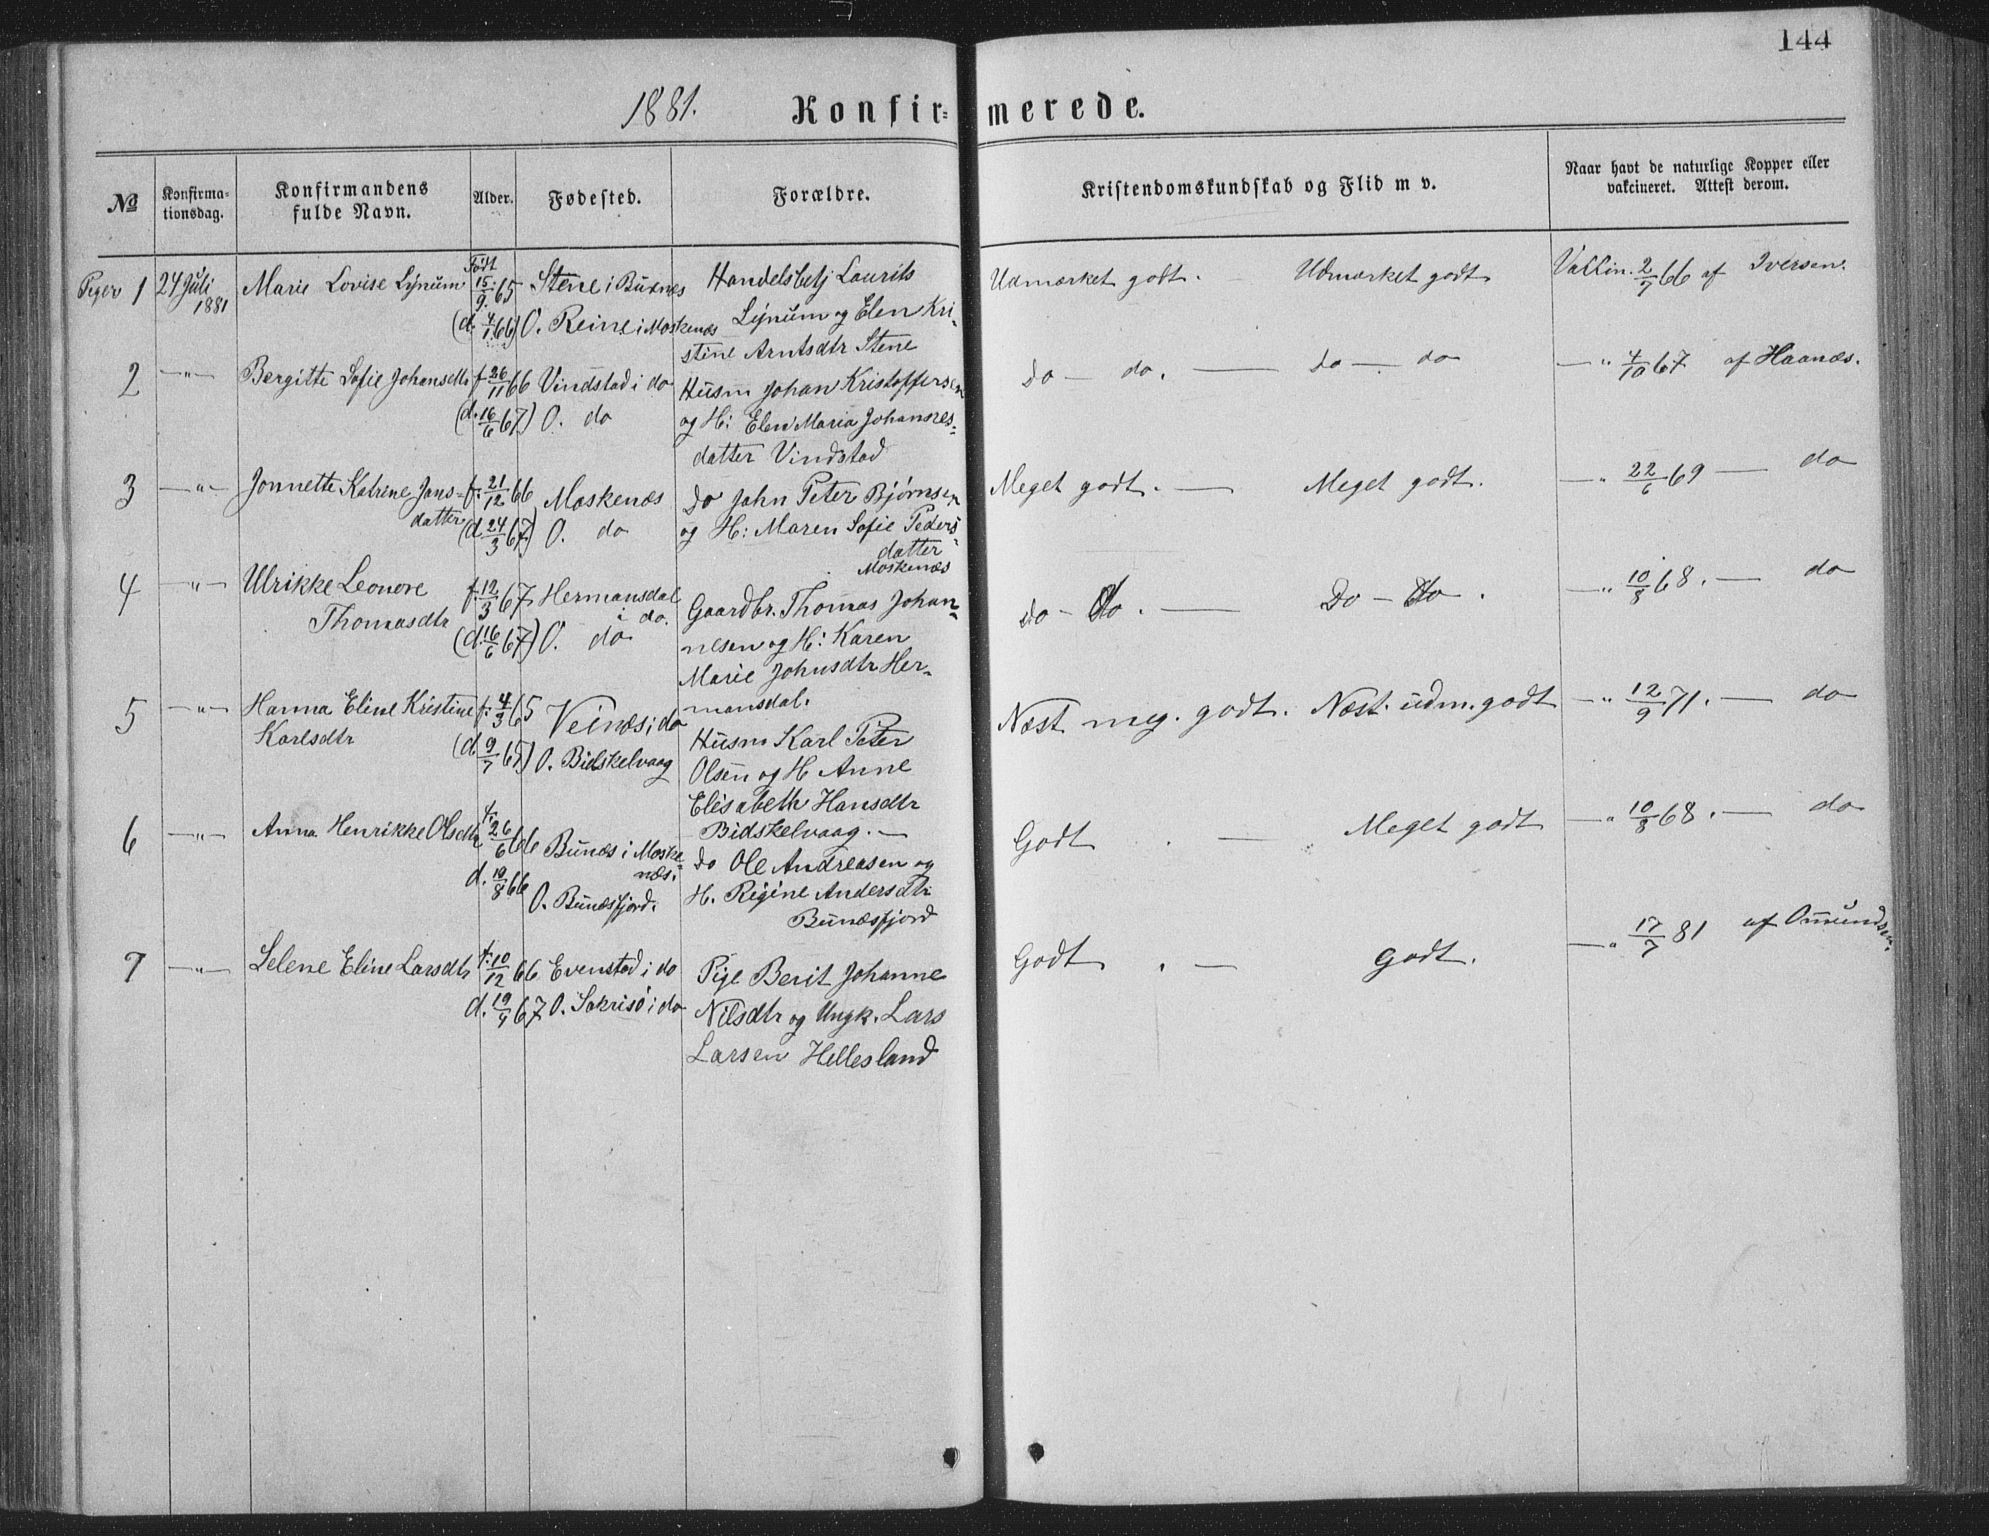 144
1881. Konfir= merede.
№ Konfirma=tionsdag. Konfirmandens fulde Navn. Alder. Fødested. Forældre. Kristendomskundskab og Flid m v. Naar havt de naturlige Kopper eller vakcineret. Attest derom.
Piger 1 24 Juli 1881 Marie Lovise Lynum Født 15/9 65 Stene i Buxnes Handelsbetj Laurits Udmærket godt. — Udmærket godt Vakkin. 2/7 66 af Iversen.
(d. 4/1 66) O. Reine i Moskenæs Lynum og Elen Kri-
stine Arntsdtr Stene
2 —"— Bergitte Sofie Johansdtr f. 26/11 66 Vindstad i do Husm Johan Kristoffersen do — do. — do — do —" 4/10 67 af Haanæs.
(d. 16/6 67) O. do og H: Elen Maria Johannes-
datter Vindstad
3 —"— Jonnette Katrine Jons= f. 21/12 66 Moskenæs do John Peter Bjørnsen Meget godt. — Meget godt. —" 22/6 69 — do
datter (d. 24/3 67.) O. do og H: Maren Sofie Peders-
datter
Moskenæs
4 —"— Ulrikke Leonore f. 12/3 67 Hermansdal Gaardbr. Thomas Johan- do — do. — Do — do. —" 10/8 68. — do
Thomasdtr i do.
(d. 16/6 67) O. do nesen og H: Karen
Marie Johnsdtr Her-
mansdal.
5 —"— Hanna Eline Kristine f: 4/3 65 Veinæs i do Husm Karl Peter Næst meg. godt. Næst. udm. godt —" 12/9 71. — do
Karlsdtr (d. 9/7 65) O. Bidskelvaag Olsen og H Anne
Elisabeth Hansdtr
Bidskelvaag. —
6 —"— Anna Henrikke Olsdtr f. 26/6 66 Bunæs i Moske- do Ole Andreasen og Godt. — Meget godt —" 10/8 68. — do
næs.
d. 19/8 66 O. Bunæsfjord. H. Regine Andersdtr
Bunæsfjord
7 —"— Selene Eline Larsdtr f. 10/12 66 Evenstad i do Pige Berit Johanne Godt. — Godt. —" 17/7 81 af Omundsen.
d. 19/9 67 O. Sakrisø i do Nilsdtr og Ungk. Lars
Larsen Hellesland